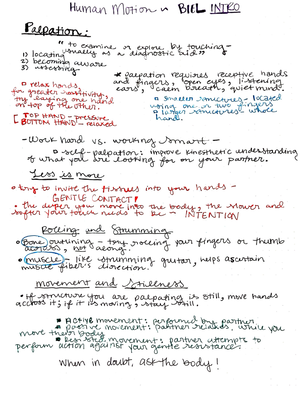 Human Motion in BIEL INTRO
Palpation:
"to examine or explore by touching -
usually as a diagnostic aid"
1) locating
2) becoming aware
3) assessing
* palpation requires receptive hands
and fingers, open eyes, listening
ears, calm breath, quiet mind.
▫ relax hands,
for greater sensitivity,
try laying one hand
on top of the other.
TOP HAND - pressure
BOTTOM HAND - relaxed
▫ smaller structures - located
using one or two fingers
▫ larger structures whole
hand.
- Work hard vs. working smart -
▫ self-palpation: improve kinesthetic understanding
of what you are looking for on your partner.
Less is more
• try to invite the tissues into your hands -
GENTLE CONTACT!
• the deeper you move into the body, the slower and
softer your touch needs to be - INTENTION
Rolling and Strumming
• Bone outlining - try rolling your fingers or thumb
across, not along.
• muscle - like strumming guitar, helps ascertain
muscle fiber's direction.
movement and Stillness
• if structure you are palpating is still, move hands
across it; if it is moving, stay still.
▪ Active movement: performed by partner
▪ passive movement: partner relaxes, while you
move their body
▪ Resisted movement: partner attempts to
perform action against your gentle resistance.
When in doubt, ask the body!